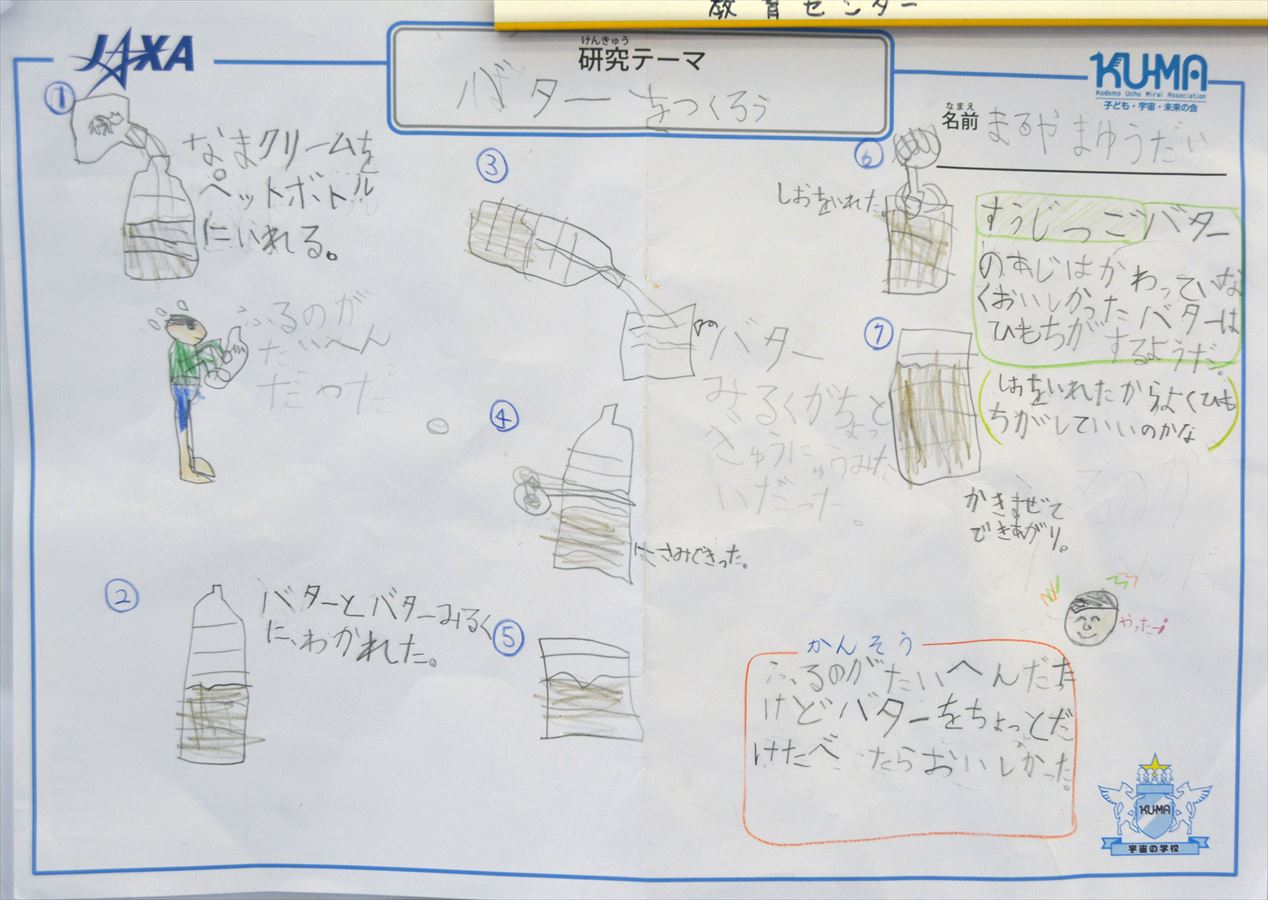 教育センター
JAXA
けんきゅう
研究テーマ
バターをつくろう
KU-MA
Kodomo Uchu Mirai Association
子ども・宇宙・未来の会
なまえ
名前 まるやまゆうだい
①
なまクリームを
ペットボトル
にいれる。
ふるのが
たいへん
だった
②
バターとバターみるく
に、わかれた。
③
バター
みるくがちょっと
ぎゅうにゅうみた
いだった。
④
はさみできった。
⑤
⑥
しおをいれた。
⑦
かきまぜて
できあがり。
すうじつごバター
のあじはかわっていな
くおいしかったバターは
ひもちがするようだ。
(しおをいれたからよくひも
ちがしていいのかな)
やったー!
かんそう
ふるのがたいへんだた
けどバターをちょっとだ
けたべたらおいしかった。
KU-MA
宇宙の学校